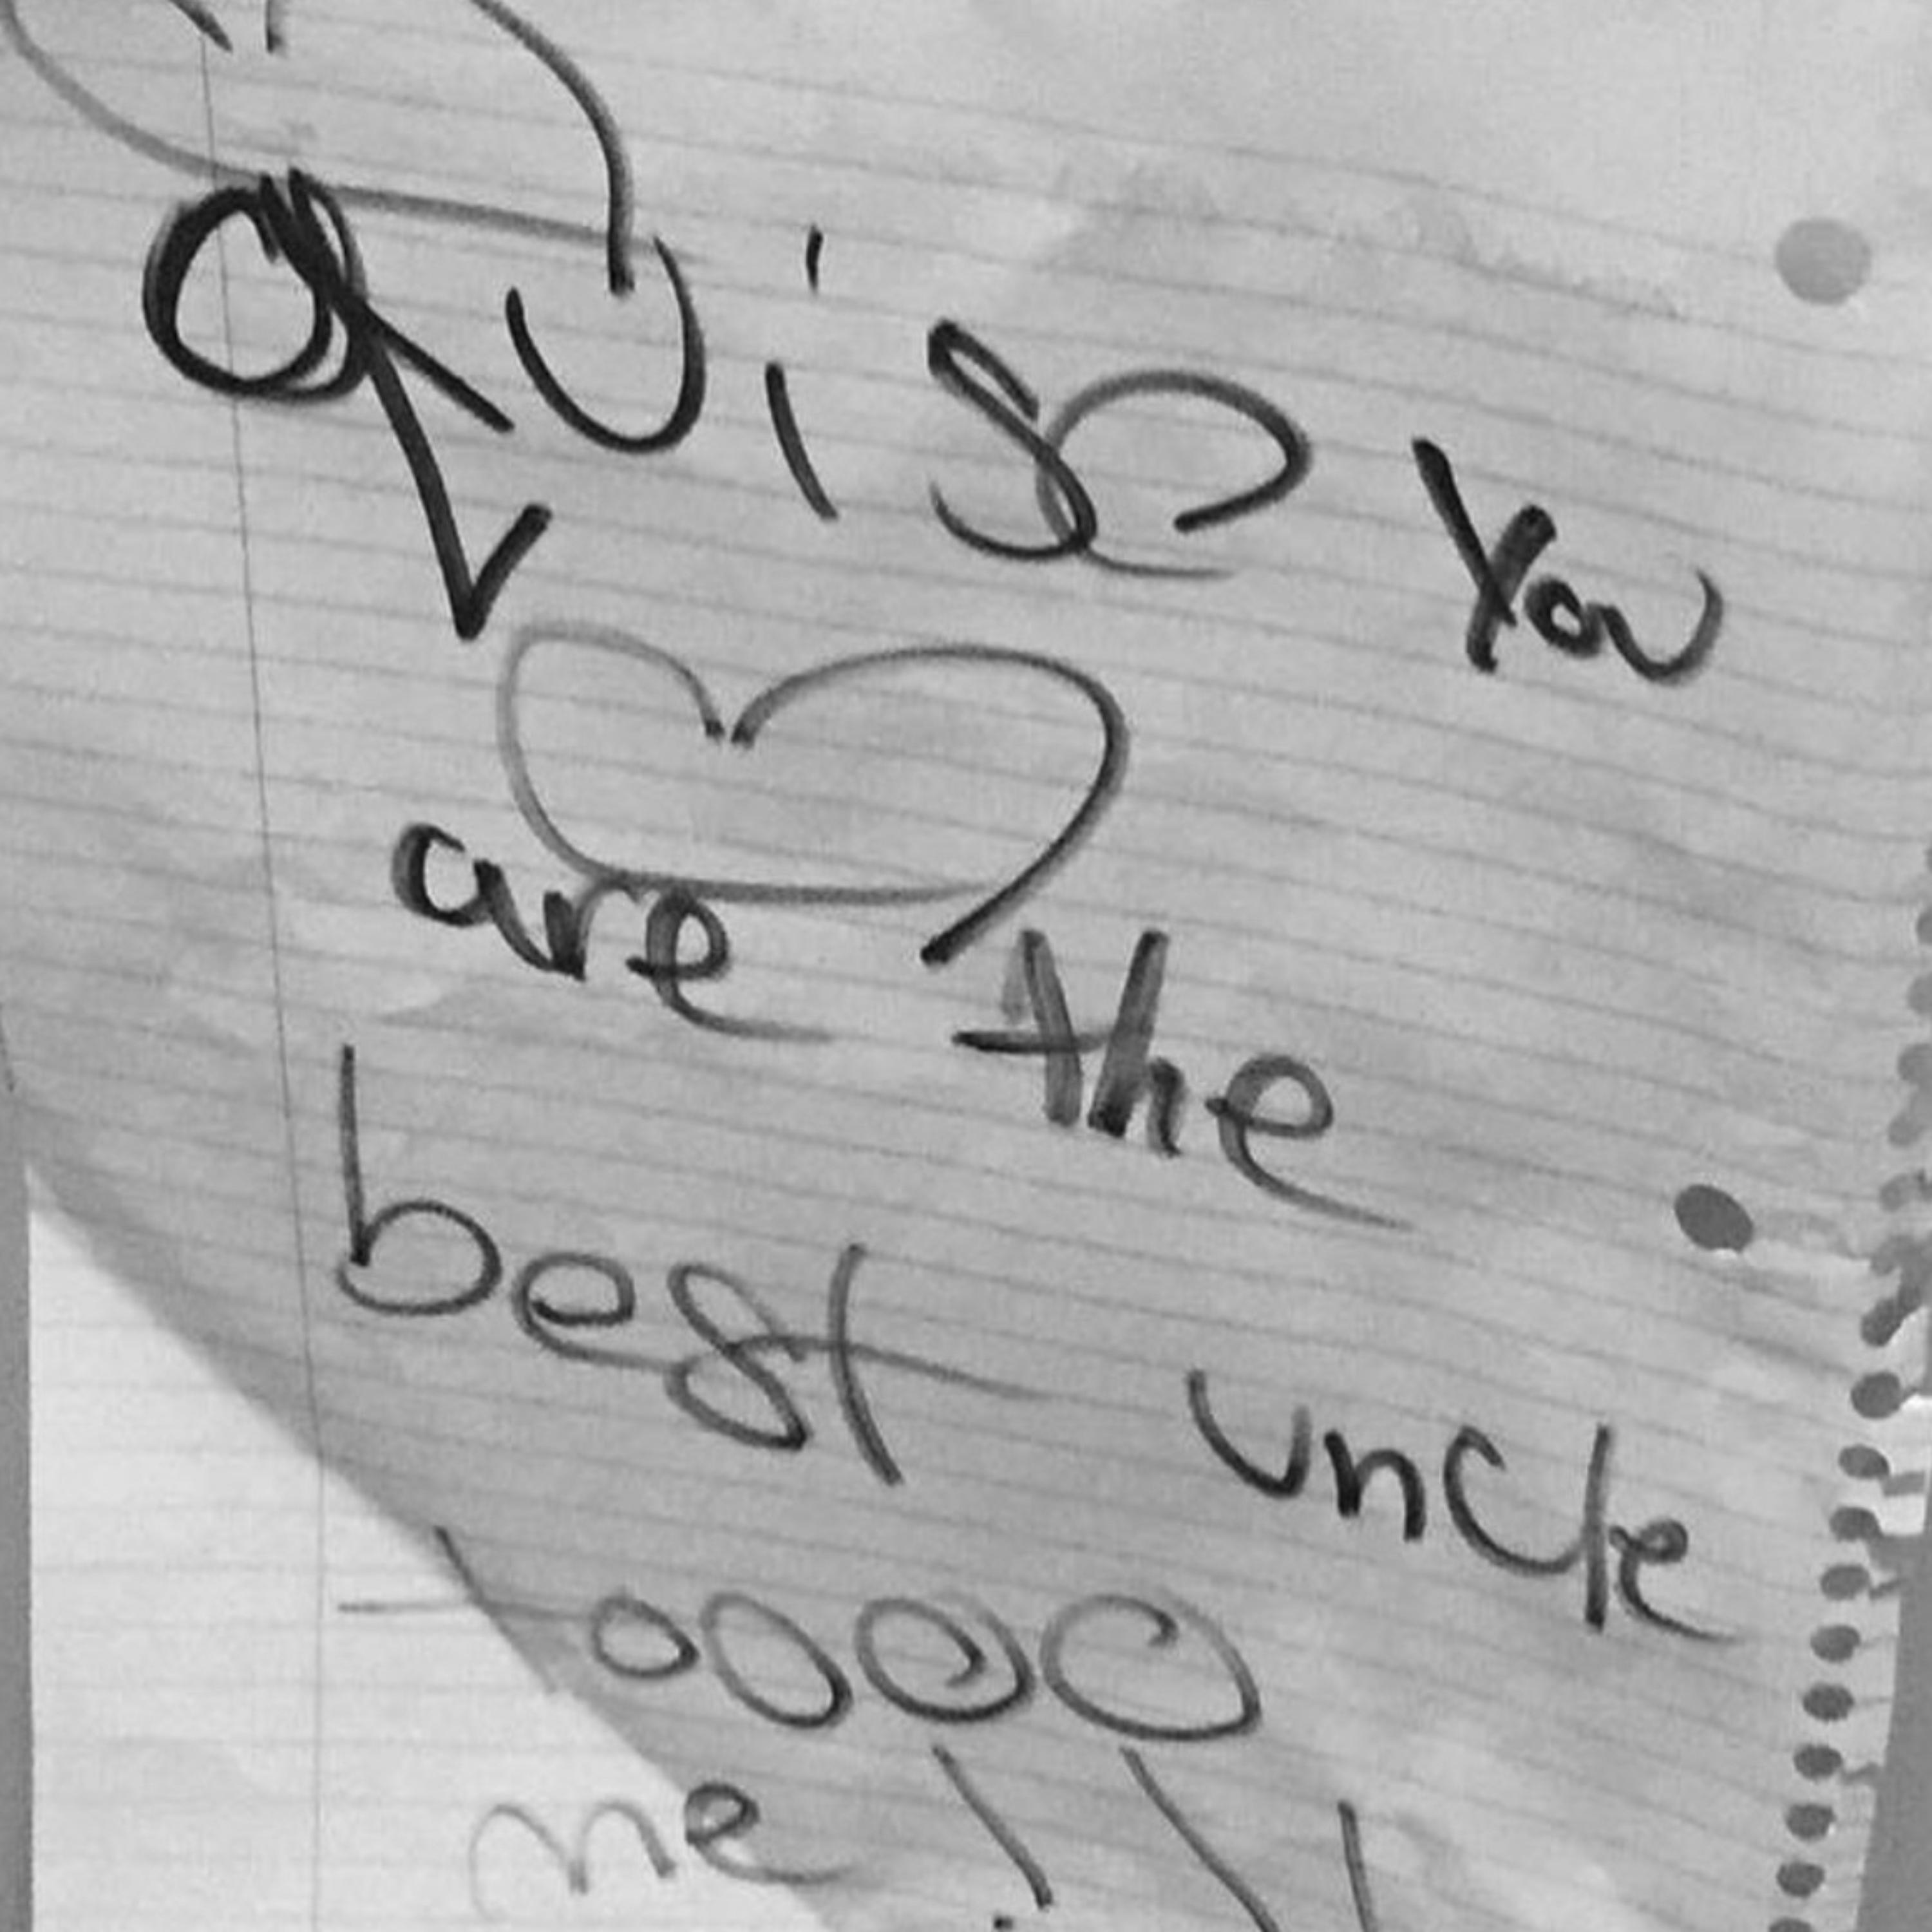 quise You
are the
best uncle
toooo
me!!!